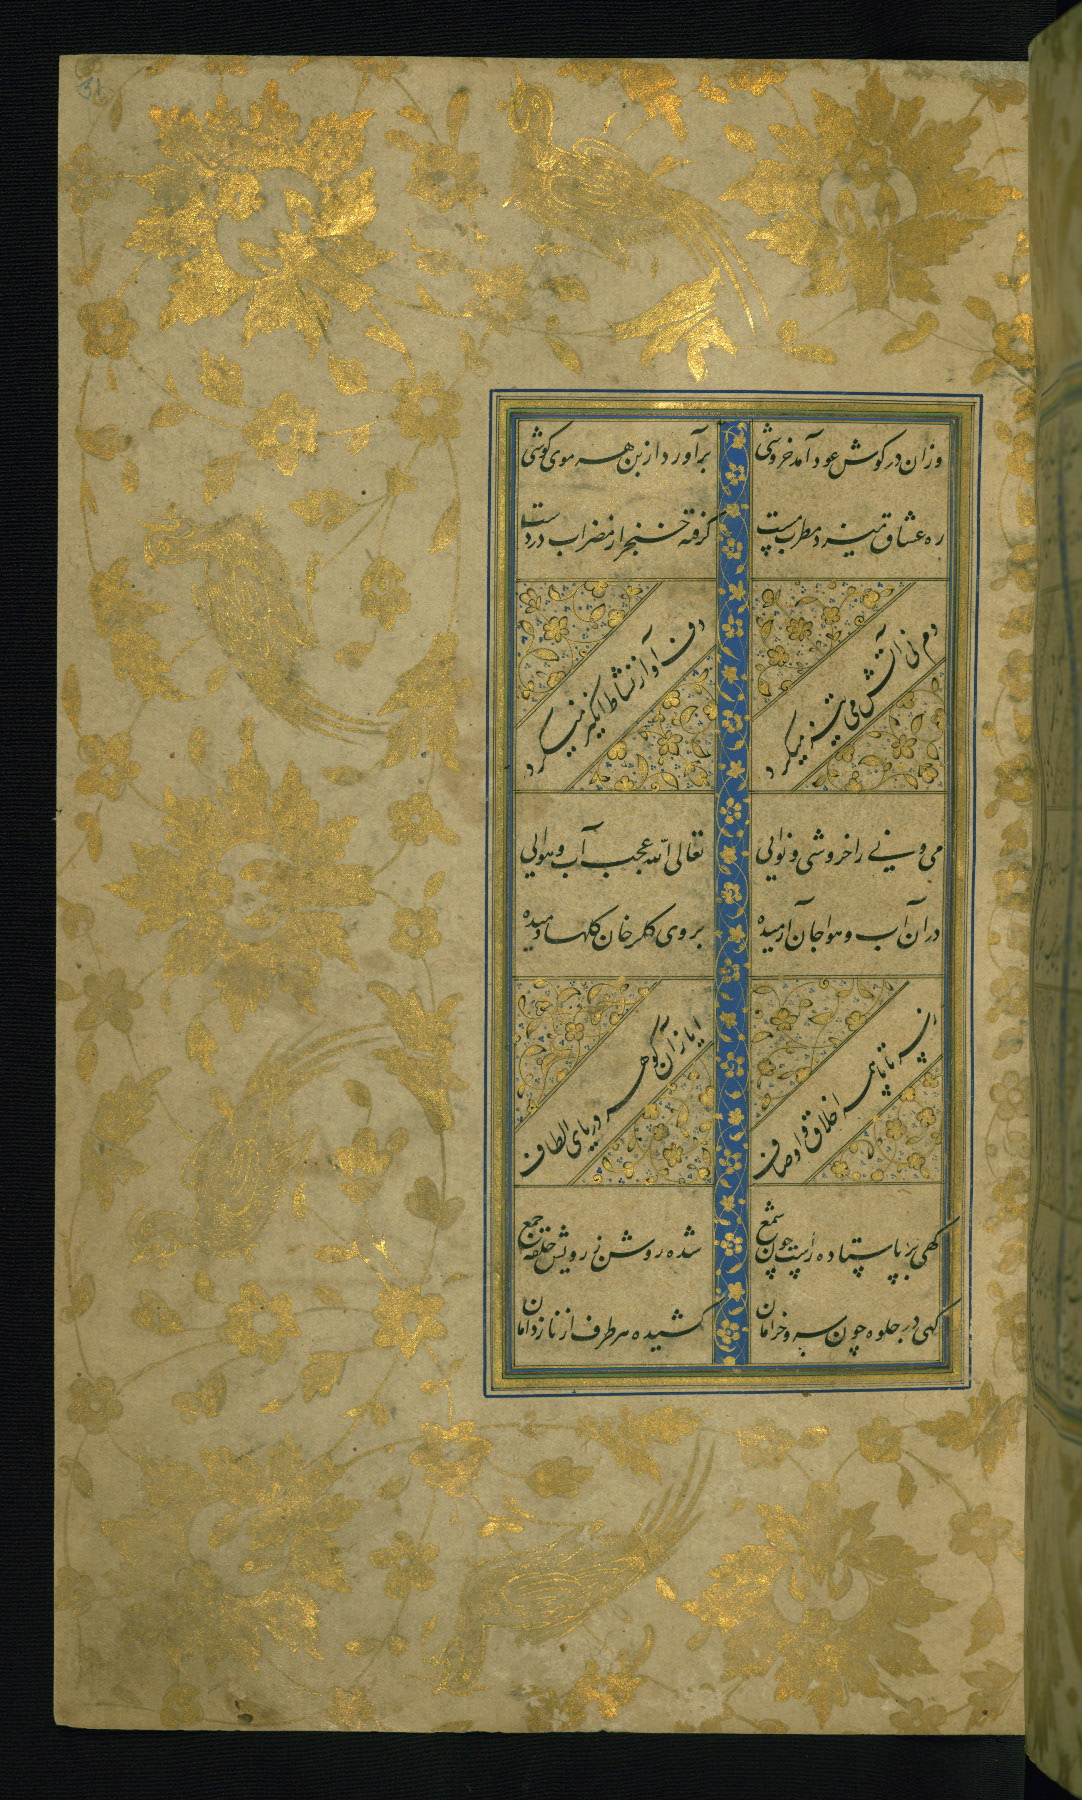 وزان در کوش عود آمد خروشی برآورد از بن هر موی کوشی
ره عشاق میزد مطرب مست گرفته خنجر از مضراب در دست
دم نی آتش می تیز میکرد دف آواز نشاط انگیز میکرد
می و نی را خروشی و نوایی تعالی الله عجب آب و هوایی
در آن آب و هوا جان آرمیده بروی کلرخان کلها دمیده
ز سر تا پا همه اخلاق و اوصاف ایاز آن کوهر دریای الطاف
کهی بر پا ستاده راست چون شمع شده روشن ز رویش حلقه جمع
کهی در جلوه چون سرو خرامان کشیده هر طرف از ناز دامان